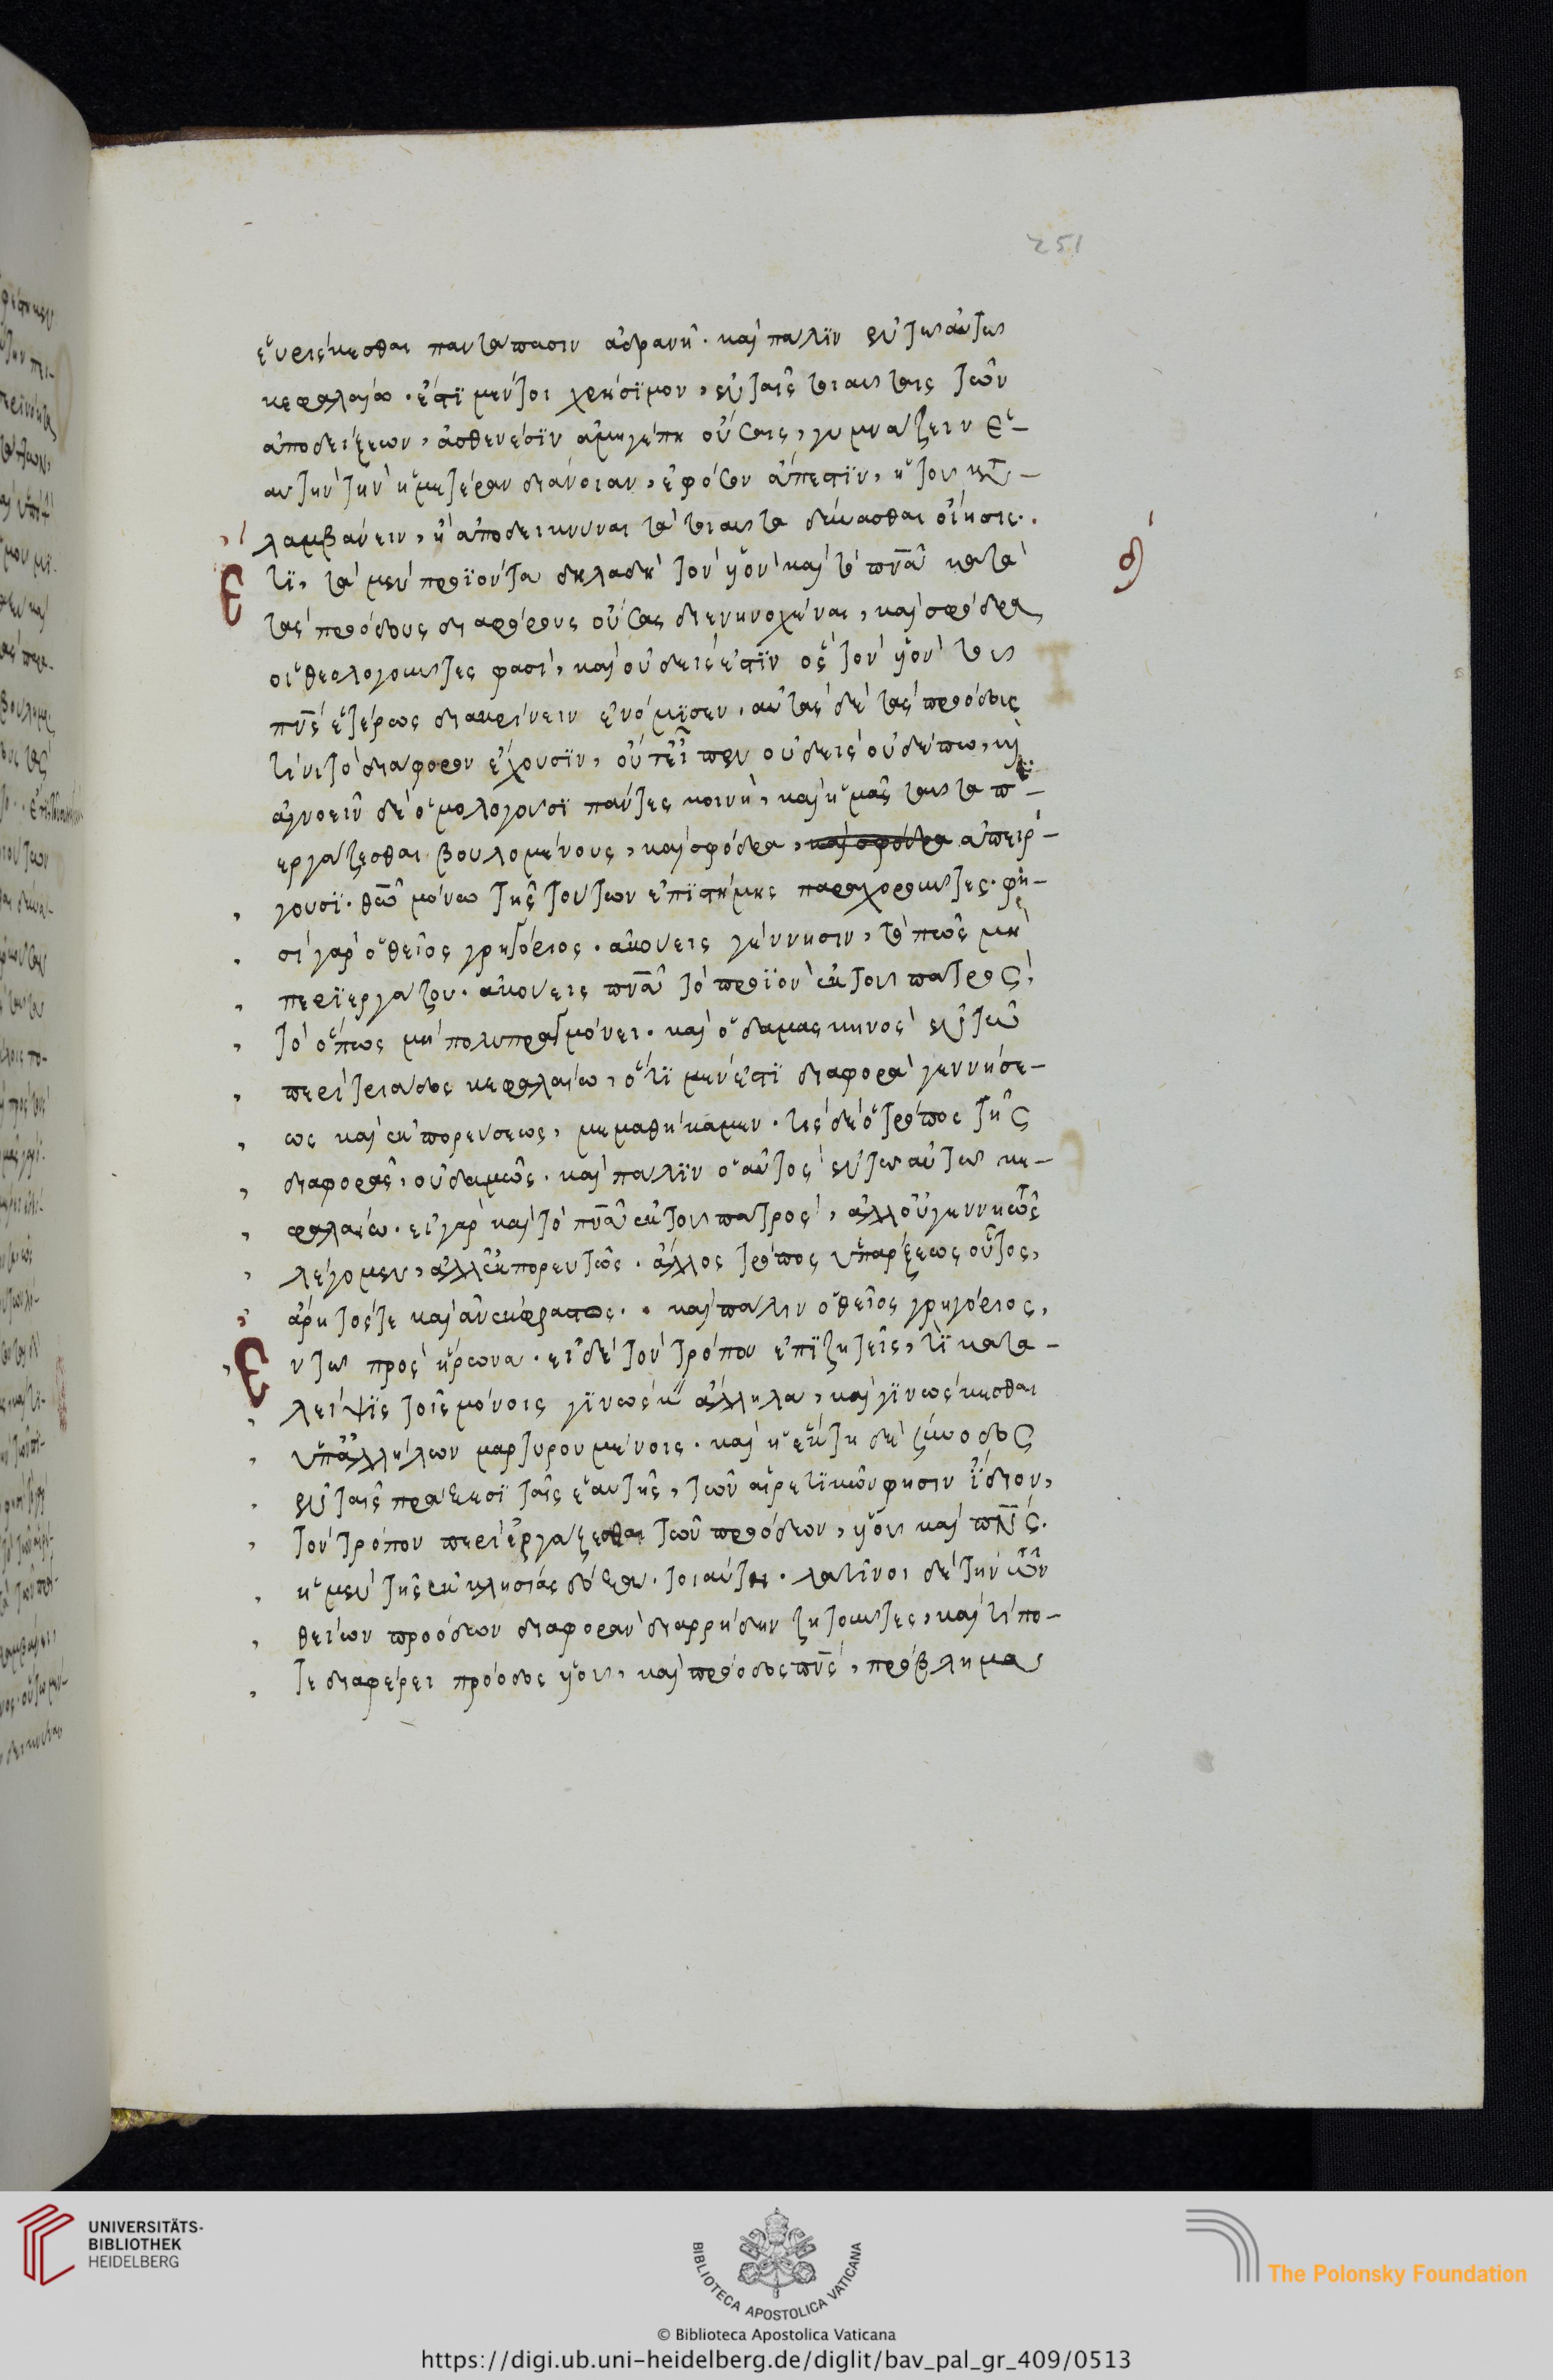 251
εὑρίσκεσθαι πανταπασιν ἀδρανῆ. καὶ παλϊν ἐν τω αυτω
κεφαλαίω. ἐστϊ μεν τοι χρήσϊμον, ἐν ταῖς τοιαυταις τῶν
ἀποδείξεων, ἀσθενέσϊν αμηγέπη οὔσαις, γυμναζειν ε-
αυτὴν τὴν ἡμετέραν διάνοιαν, ἐφόσον ἄπεστϊν, ἡ του κατα-
λαμβάνειν, ἢ ἀποδεικνυναι τὰ τοιαυτα δύνασθαι οἴησις.
Ετϊ, τὰ μὲν προϊοντα δηλαδὴ τὸν υἱὸν καὶ τὸ πνᾶ κατὰ
τὰς προόδους διαφόρους οὔσας διενηνοχέναι, καὶ σφόδρα
οἱ θεολογουντες φασὶ, καὶ οὐδείς ἐστϊν ὃς τὸν υἱὸν του
πνς ἑτέρως διακρίνειν ἐνόμϊσεν, αὐτὰς δὲ τὰς προόδους
τίνι τὸ διαφορον ἔχουσϊν, οὔτ εἶπεν οὐδεὶς οὐδέπω,
ἀγνοεῖν δὲ ὁμολογουσϊ πάντες κοινῆ, καὶ ἡμᾶς ταυτα π-
εργαζεσθαι βουλομένους, καὶ σφόδρα, καὶ σφόδρα ἀπειρ-
γουσϊ. θῶ μόνω τῆς τουτων ἐπϊστήμης παραχωρουντες. φη-
σὶ γὰρ ὁ θεῖος γρηγόριος. ἀκούεις γέννησιν, τὸ πῶς μὴ
περϊεργαζου. ἀκούεις πνᾶ τὸ προϊὸν ἐκ του πατρος,
τὸ ὅπως μὴ πολυπραγμόνει. καὶ ὁ δαμασκηνος ἐν τῶ
περὶ τριαδος κεφαλαίω, ὅτϊ μέν ἐστϊ διαφορὰ γεννήσε-
ως καὶ ἐκπορευσεως, μεμαθήκαμεν. τίς δὲ ὁ τρόπος τῆς
διαφορᾶς, οὐδαμῶς. καὶ παλϊν ὁ αὐτὸς ἐν τω αὐτω κε-
φαλαίω. εἰ γὰρ καὶ τὸ πνᾶ ἐκ του πατρος, ἀλλ οὐ γεννητῶς
λέγομεν, ἀλλ ἐκπορευτῶς. ἄλλος τρόπος ὑπαρξεως οὗτος,
ἄρητός τε καὶ ἀνεκφραστος. καὶ παλιν ὁ θεῖος γρηγόριος,
Εν τω πρὸς ἥρωνα. εἰ δὲ τὸν τρόπον ἐπϊζητεῖς, τϊ κατα-
λείψϊς τοῖς μόνοις γϊνώσκϊν ἄλληλα, καὶ γϊνώσκεσθαι
ὑπ ἀλλήλων μαρτυρουμένοις. καὶ ἡ ἕκτη δὲ ζύνοδος
ἐν ταῖς πραξεσϊ ταῖς ἑαυτῆς, τῶν αἱρετϊκῶν φησιν ἴδιον,
τὸν τρόπον περὶ ἐργαζεσθαι τῶν προόδων, υἱου καὶ πνς.
ἡ μὲν τῆς ἐκκλησίας δόξα τοιαύτη. λατῖνοι δὲ τὴν τῶν
θείων προόδων διαφορὰν διαρρήδην ζητουντες, καὶ τί πο-
τε διαφέρει πρόοδος υἱου, καὶ πρόοδος πνς, πρόβλημα
UNIVERSITÄTS-
BIBLIOTHEK
HEIDELBERG
BIBLIOTECA APOSTOLICA VATICANA
The Polonsky Foundation
© Biblioteca Apostolica Vaticana
https://digi.ub.uni-heidelberg.de/diglit/bav_pal_gr_409/0513